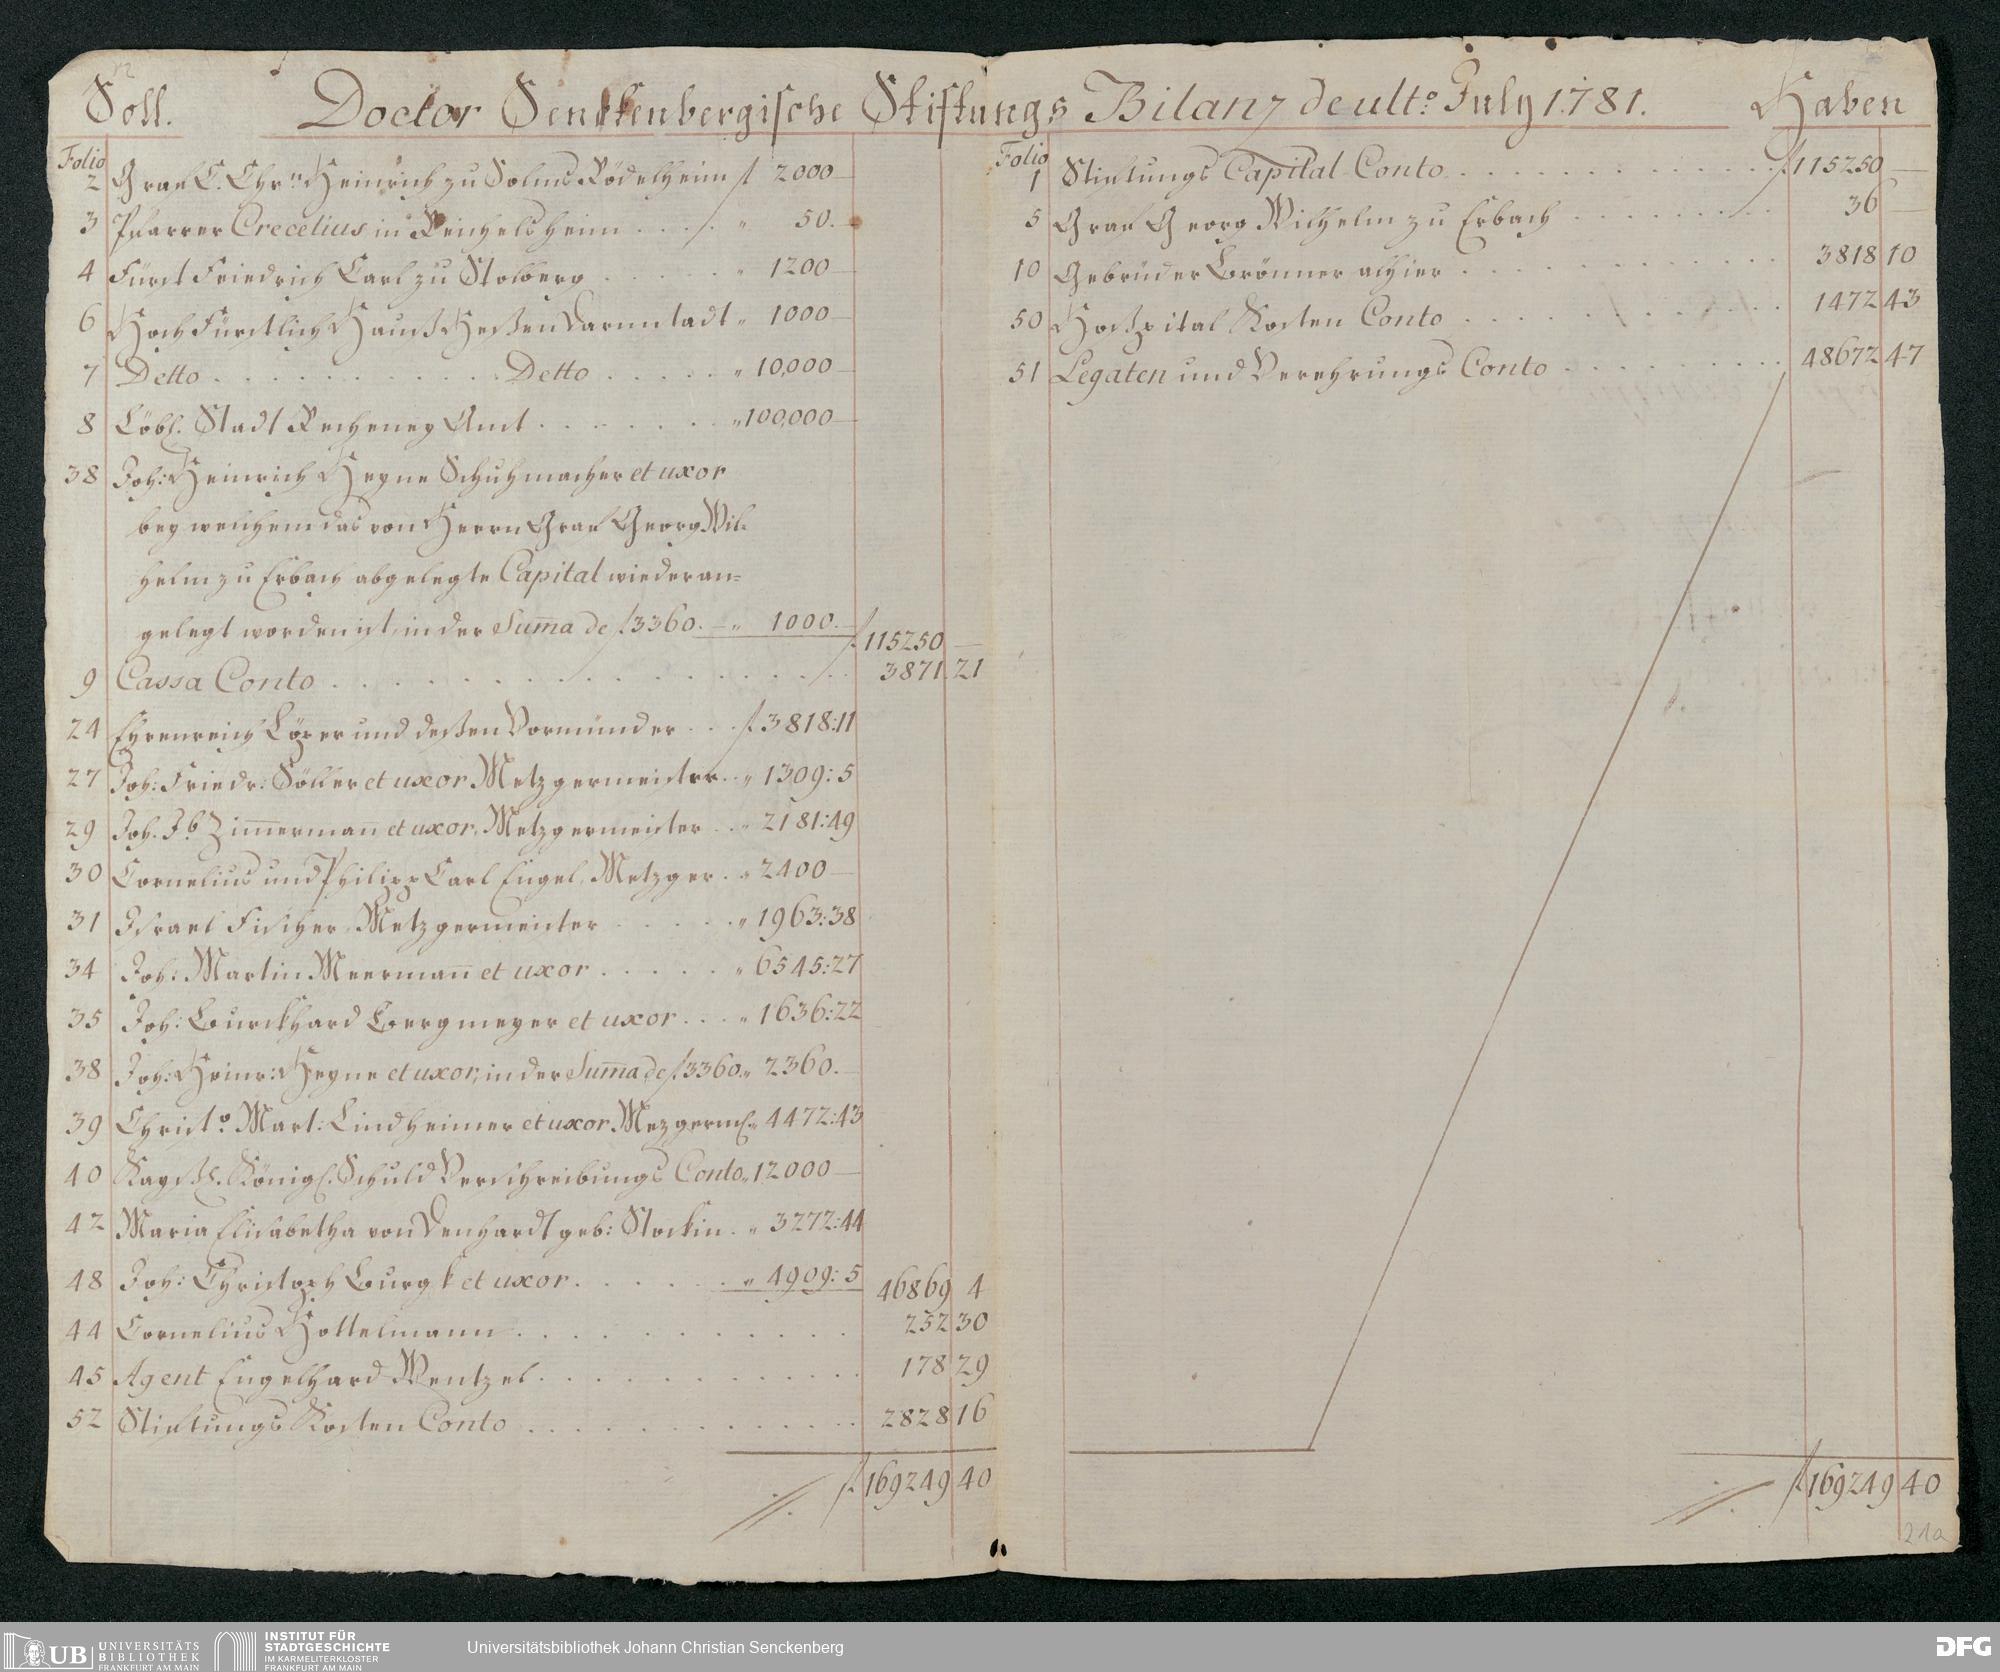 Soll. Doctor Senckenbergische Stiftungs Bilanz de ulto. July 1781. Haben
Folio
2 Graf C. Chrn. Heinrich zu Solms Rödelheim f 2000 —
3 Pfarrer Crecelius in Reichelsheim . . . . " 50. —
4 Fürst Friedrich Carl zu Stolberg . . . . . " 1200 —
6 Hoch Fürstlich Hauß Heßen Darmstadt " 1000 —
7 Detto . . . . . . Detto . . . . . " 10,000 —
8 Löbl. Stadt Recheney Amt . . . . . " 100,000 —
38 Joh: Heinrich Heyne Schuhmacher et uxor
bey welchem das von Herrn Graf Georg Wil-
helm zu Erbach abgelegte Capital wieder an=
gelegt worden ist, in der Suma de f. 3360. — " 1000. — f. 115250 —
9 Cassa Conto . . . . . . . . . . 3871. 21
24 Ehrenreich Löper und deßen Vormünder . . . f. 3818:11
27 Joh: Friedr: Söller et uxor Metzgermeister . . " 1309: 5
29 Joh. Jb. Zimermañ et uxor, Metzgermeister . . " 2181:49
30 Cornelius und Philipp Carl Engel, Metzger . . " 2400 —
31 Israel Fischer, Metzgermeister . . . . . " 1963:38
34 Joh: Martin Meermañ et uxor . . . . . " 6545:27
35 Joh: Burckhard Bergmeyer et uxor . . . " 1636:22
38 Joh: Heinr: Heyne et uxor, in der Suma de f. 3360. " 2360. —
39 Christo. Mart: Lindheimer et uxor Mezgerm. " 4472:43
40 Kayßl. Königl. Schuld Verschreibungs Conto " 12000 —
42 Maria Elisabetha von Denhardt geb: Stockin . " 3272:44
48 Joh: Christoph Burgk et uxor . . . . . . " 4909: 5 46869 4
44 Cornelius Hottelmann . . . . . . . . 252 30
45 Agent Engelhard Wentzel . . . . . . . . 178 29
52 Stiftungs Kosten Conto . . . . . . . . 2828 16
f. 169249 40
Folio
1 Stiftungs Capital Conto . . . . . . . . f. 115250 —
5 Graf Georg Wilhelm zu Erbach . . . . . . . 36 —
10 Gebrüder Brönner alhier . . . . . . . . 3818 10
50 Hoßpital Kosten Conto . . . . . . . . 1472 43
51 Legaten und Verehrungs Conto . . . . . . . 48672 47
f. 169249 40
21a
UB UNIVERSITÄTS
BIBLIOTHEK
FRANKFURT AM MAIN
INSTITUT FÜR
STADTGESCHICHTE
IM KARMELITERKLOSTER
FRANKFURT AM MAIN
Universitätsbibliothek Johann Christian Senckenberg
DFG